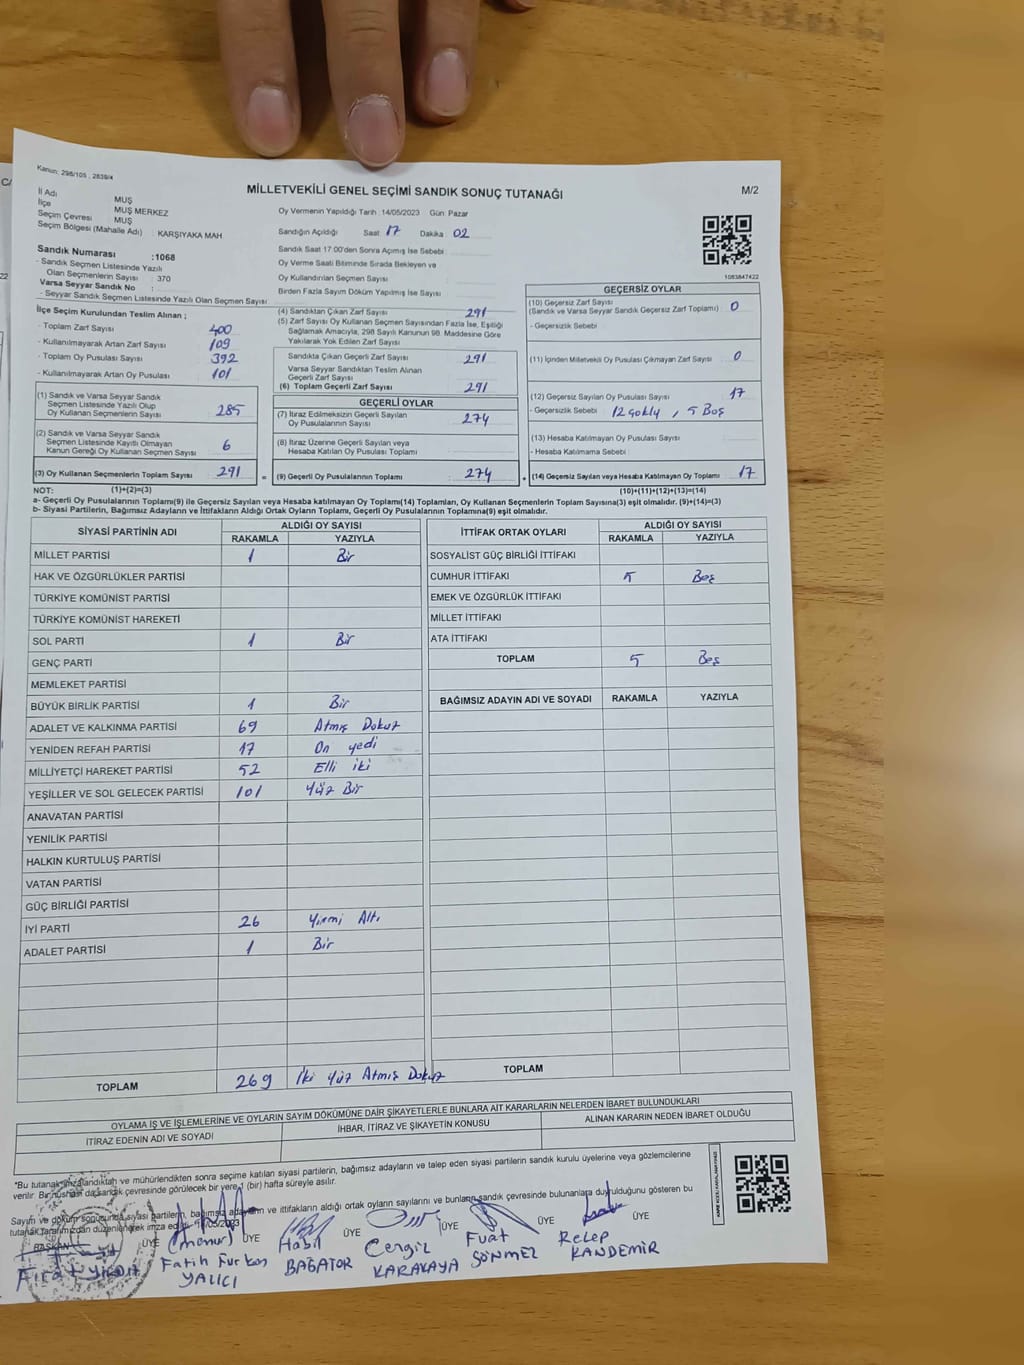 Kanun: 298/105 , 2839/4
MİLLETVEKİLİ GENEL SEÇİMİ SANDIK SONUÇ TUTANAĞI
M/2
İl Adı MUŞ
İlçe MUŞ MERKEZ
Seçim Çevresi MUŞ
Seçim Bölgesi (Mahalle Adı) : KARŞIYAKA MAH
Sandık Numarası :1068
- Sandık Seçmen Listesinde Yazılı
Olan Seçmenlerin Sayısı : 370
Varsa Seyyar Sandık No :
- Seyyar Sandık Seçmen Listesinde Yazılı Olan Seçmen Sayısı
Oy Vermenin Yapıldığı Tarih :14/05/2023 Gün: Pazar
Sandığın Açıldığı Saat 17 Dakika 02
Sandık Saat 17:00'den Sonra Açılmış İse Sebebi
Oy Verme Saati Bitiminde Sırada Bekleyen ve
Oy Kullandırılan Seçmen Sayısı
Birden Fazla Sayım Döküm Yapılmış İse Sayısı
1083847422
İlçe Seçim Kurulundan Teslim Alınan ;
- Toplam Zarf Sayısı 400
- Kullanılmayarak Artan Zarf Sayısı 109
- Toplam Oy Pusulası Sayısı 392
- Kullanılmayarak Artan Oy Pusulası 101
(1) Sandık ve Varsa Seyyar Sandık
Seçmen Listesinde Yazılı Olup
Oy Kullanan Seçmenlerin Sayısı 285
(2) Sandık ve Varsa Seyyar Sandık
Seçmen Listesinde Kayıtlı Olmayan
Kanun Gereği Oy Kullanan Seçmen Sayısı 6
(3) Oy Kullanan Seçmenlerin Toplam Sayısı 291
(1)+(2)=(3)
(4) Sandıktan Çıkan Zarf Sayısı 291
(5) Zarf Sayısı Oy Kullanan Seçmen Sayısından Fazla İse, Eşitliği
Sağlamak Amacıyla, 298 Sayılı Kanunun 98. Maddesine Göre
Yakılarak Yok Edilen Zarf Sayısı
Sandıkta Çıkan Geçerli Zarf Sayısı 291
Varsa Seyyar Sandıktan Teslim Alınan
Geçerli Zarf Sayısı
(6) Toplam Geçerli Zarf Sayısı 291
GEÇERLİ OYLAR
(7) İtiraz Edilmeksizin Geçerli Sayılan
Oy Pusulalarının Sayısı 274
(8) İtiraz Üzerine Geçerli Sayılan veya
Hesaba Katılan Oy Pusulaları Toplamı
= (9) Geçerli Oy Pusulalarının Toplamı 274
GEÇERSİZ OYLAR
(10) Geçersiz Zarf Sayısı
(Sandık ve Varsa Seyyar Sandık Geçersiz Zarf Toplamı) 0
- Geçersizlik Sebebi
(11) İçinden Milletvekili Oy Pusulası Çıkmayan Zarf Sayısı 0
(12) Geçersiz Sayılan Oy Pusulası Sayısı 17
- Geçersizlik Sebebi 12 goklu , 5 Boş
(13) Hesaba Katılmayan Oy Pusulası Sayısı
- Hesaba Katılmama Sebebi
+ (14) Geçersiz Sayılan veya Hesaba Katılmayan Oy Toplamı 17
(10)+(11)+(12)+(13)=(14)
NOT:
a- Geçerli Oy Pusulalarının Toplamı(9) ile Geçersiz Sayılan veya Hesaba katılmayan Oy Toplamı(14) Toplamları, Oy Kullanan Seçmenlerin Toplam Sayısına(3) eşit olmalıdır. (9)+(14)=(3)
b- Siyasi Partilerin, Bağımsız Adayların ve İttifakların Aldığı Ortak Oyların Toplamı, Geçerli Oy Pusulalarının Toplamına(9) eşit olmalıdır.
SİYASİ PARTİNİN ADI ALDIĞI OY SAYISI
RAKAMLA YAZIYLA
MİLLET PARTİSİ 1 Bir
HAK VE ÖZGÜRLÜKLER PARTİSİ
TÜRKİYE KOMÜNİST PARTİSİ
TÜRKİYE KOMÜNİST HAREKETİ
SOL PARTİ 1 Bir
GENÇ PARTİ
MEMLEKET PARTİSİ
BÜYÜK BİRLİK PARTİSİ 1 Bir
ADALET VE KALKINMA PARTİSİ 69 Atmış Dokuz
YENİDEN REFAH PARTİSİ 17 On yedi
MİLLİYETÇİ HAREKET PARTİSİ 52 Elli iki
YEŞİLLER VE SOL GELECEK PARTİSİ 101 Yüz Bir
ANAVATAN PARTİSİ
YENİLİK PARTİSİ
HALKIN KURTULUŞ PARTİSİ
VATAN PARTİSİ
GÜÇ BİRLİĞİ PARTİSİ
İYİ PARTİ 26 Yirmi Altı
ADALET PARTİSİ 1 Bir
TOPLAM 269 İki Yüz Atmış Dokuz
İTTİFAK ORTAK OYLARI ALDIĞI OY SAYISI
RAKAMLA YAZIYLA
SOSYALİST GÜÇ BİRLİĞİ İTTİFAKI
CUMHUR İTTİFAKI 5 Beş
EMEK VE ÖZGÜRLÜK İTTİFAKI
MİLLET İTTİFAKI
ATA İTTİFAKI
TOPLAM 5 Beş
BAĞIMSIZ ADAYIN ADI VE SOYADI RAKAMLA YAZIYLA
TOPLAM
OYLAMA İŞ VE İŞLEMLERİNE VE OYLARIN SAYIM DÖKÜMÜNE DAİR ŞİKAYETLERLE BUNLARA AİT KARARLARIN NELERDEN İBARET BULUNDUKLARI
İTİRAZ EDENİN ADI VE SOYADI İHBAR, İTİRAZ VE ŞİKAYETİN KONUSU ALINAN KARARIN NEDEN İBARET OLDUĞU
*Bu tutanak imzalandıktan ve mühürlendikten sonra seçime katılan siyasi partilerin, bağımsız adayların ve talep eden siyasi partilerin sandık kurulu üyelerine veya gözlemcilerine
verilir. Bir nüshası da sandık çevresinde görülecek bir yere 1 (bir) hafta süreyle asılır.
Sayım ve döküm sonucunda siyasi partilerin, bağımsız adayların ve ittifakların aldığı ortak oyların sayılarını ve bunların sandık çevresinde bulunanlara duyrulduğunu gösteren bu
tutanak tarafımızdan düzenlenerek imza edildi.
BAŞKAN ÜYE ÜYE ÜYE ÜYE ÜYE ÜYE
(memur)
Fatih Furkan YALICI
Halil BAĞATOR
Cengiz KARAKAYA
Fuat SÖNMEZ
Recep KANDEMİR